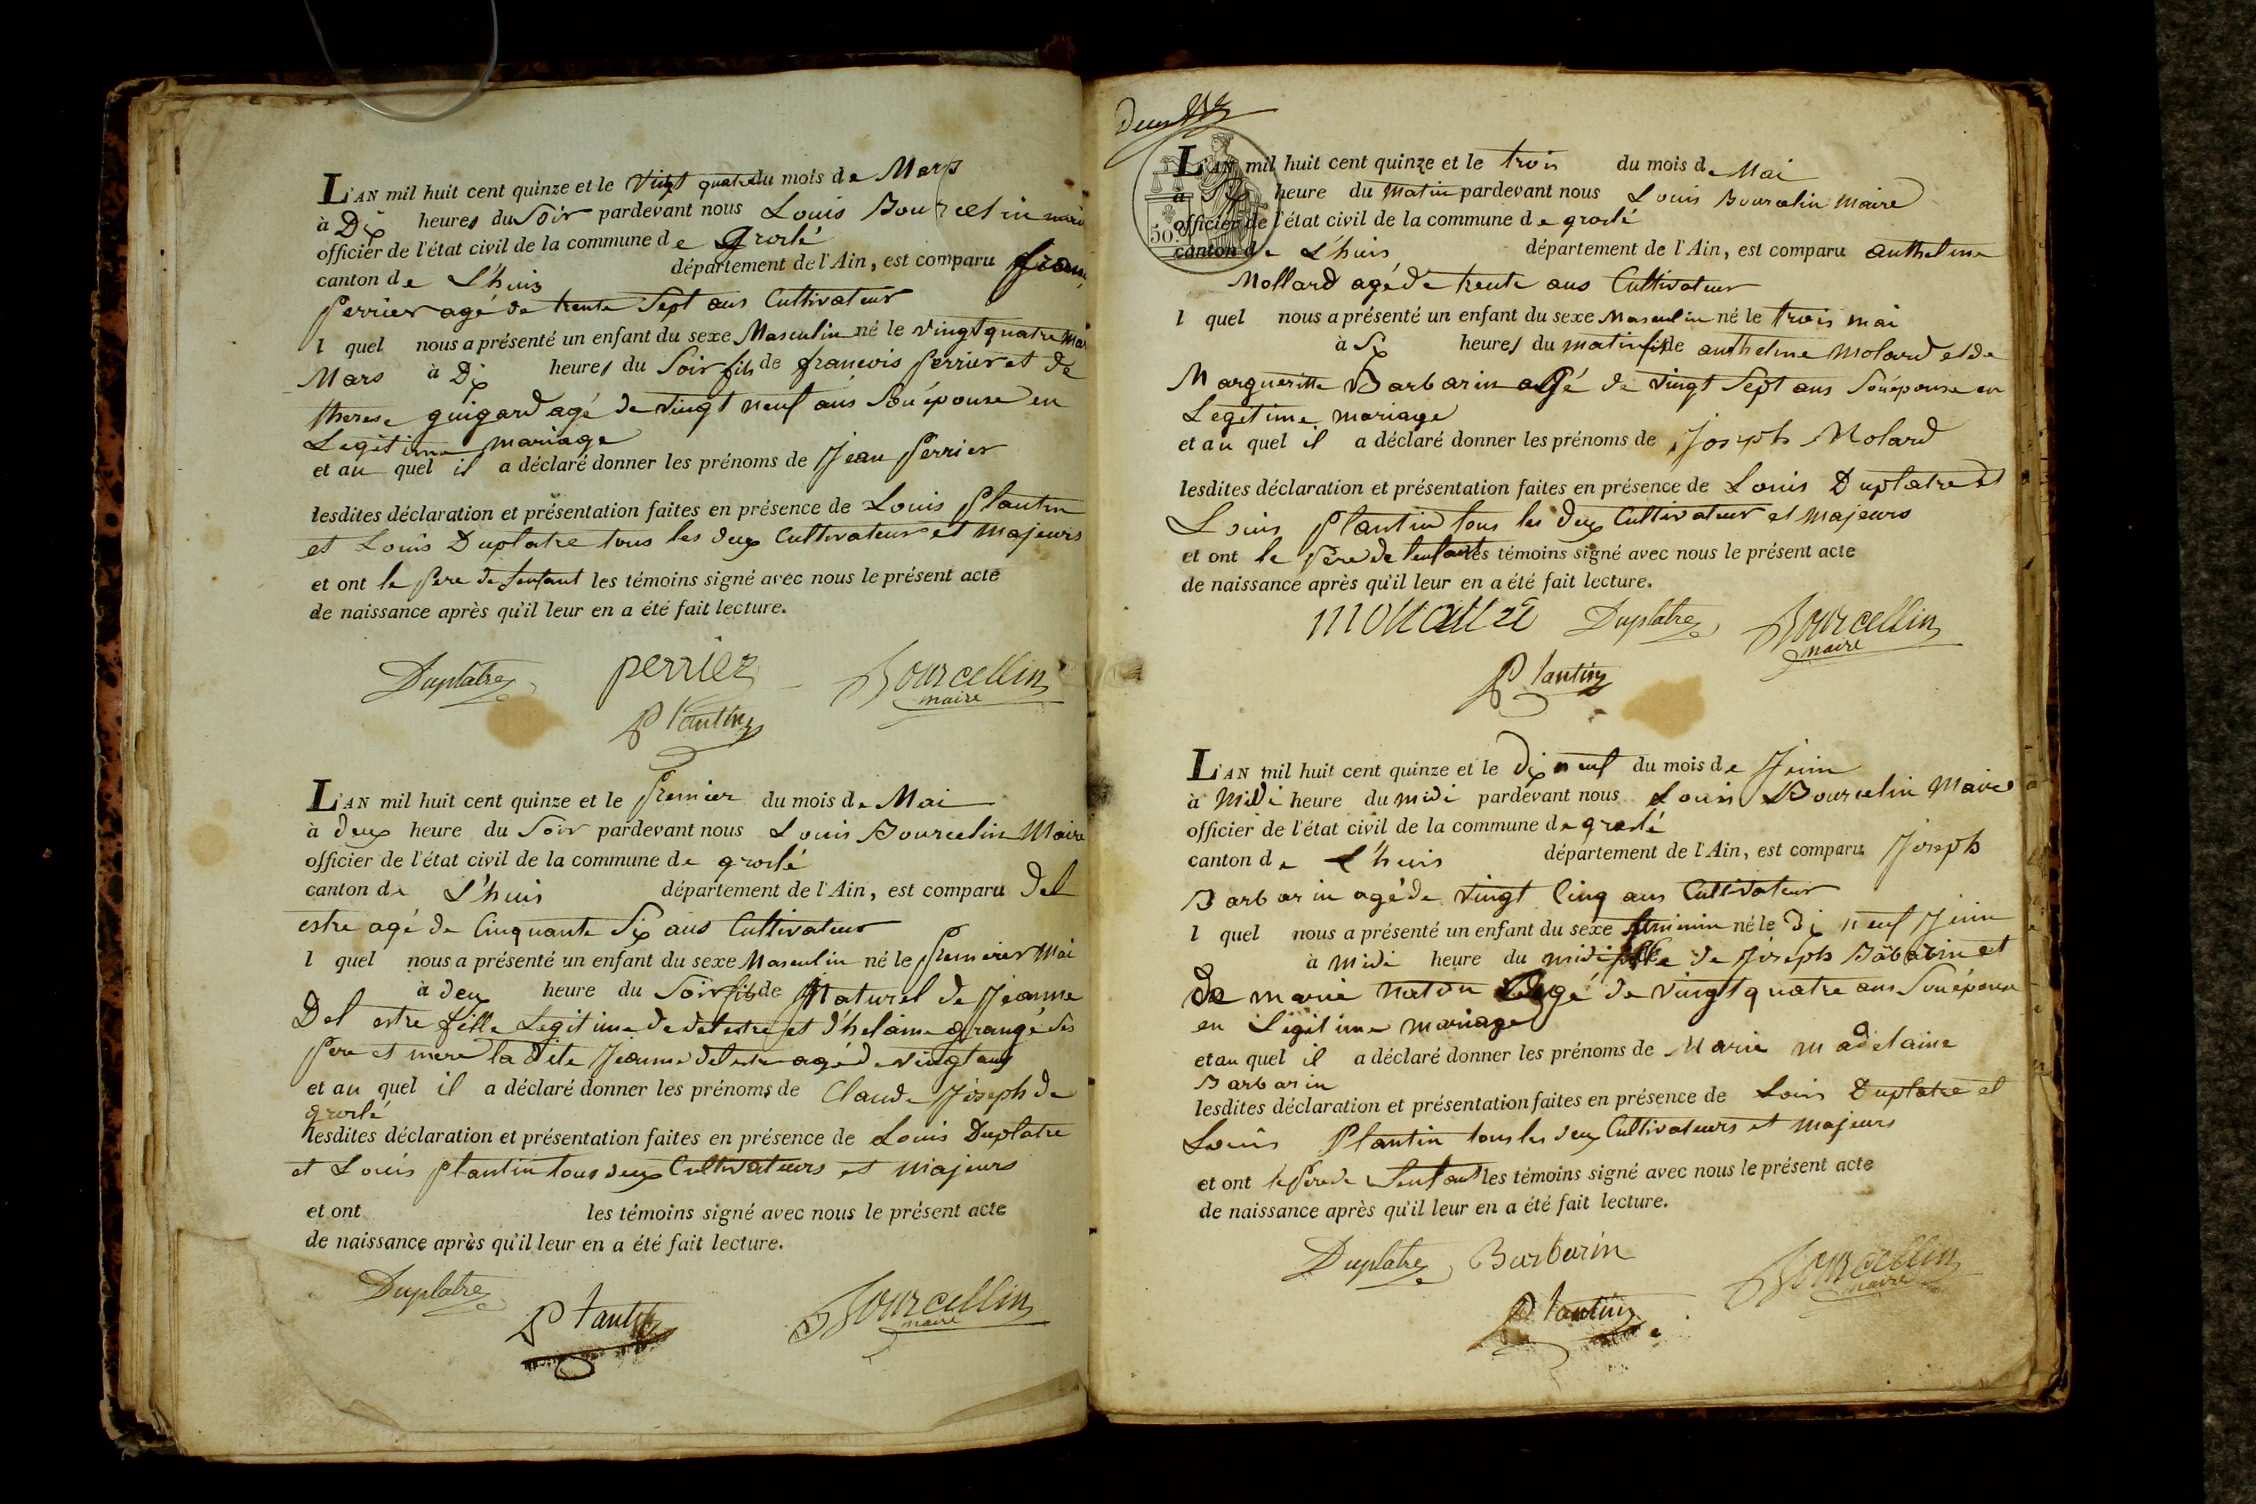 L'AN mil huit cent quinze et le vingt quatre du mois de Mars
à Dix heures du Soir pardevant nous Louis Bourcelin maire
officier de l'état civil de la commune de groslé
canton de L'huis département de l'Ain, est comparu
perrier agé de trente Sept ans Cultivateur
l quel nous a présenté un enfant du sexe Masculin né le vingt quatre
Mars à Dix heures du Soir fils de francois perrier et de
therese guigard agé de vingt neuf ans Son épouse en
Legitime mariage
et au quel il a déclaré donner les prénoms de Jean perrier
lesdites déclaration et présentation faites en présence de Louis plantin
et Louis Duplatre tous les deux Cultivateurs et majeurs
et ont le pere de lenfant les témoins signé avec nous le présent acte
de naissance après qu'il leur en a été fait lecture.
Duplatre perrier Bourcellin
maire
Plantin
L'AN mil huit cent quinze et le premier du mois de Mai
à deux heure du Soir pardevant nous Louis Bourcelin Maire
officier de l'état civil de la commune de groslé
canton de L'huis département de l'Ain, est comparu Del
estre agé de Cinquante Six ans Cultivateur
l quel nous a présenté un enfant du sexe Masculin né le premier Mai
à deux heure du Soir fils de Naturel de Jeanne
Del estre fille Legitime de delestre et d'helaine grangé Ses
pere et mere la dite Jeanne delestre agé de vingt ans
et au quel il a déclaré donner les prénoms de Claude Joseph de
groslé
lesdites déclaration et présentation faites en présence de Louis Duplatre
et Louis plantin tous deux Cultivateurs et majeurs
et ont les témoins signé avec nous le présent acte
de naissance après qu'il leur en a été fait lecture.
Duplatre Plantin Bourcellin
maire
50
L'AN mil huit cent quinze et le trois du mois de Mai
à Six heure du Matin pardevant nous Louis Bourcelin Maire
officier de l'état civil de la commune de groslé
canton de L'huis département de l'Ain, est comparu anthelme
Mollard agé de trente ans Cultivateur
l quel nous a présenté un enfant du sexe Masculin né le trois mai
à Six heures du matin fils de anthelme Molard et de
Margueritte Barbarin agé de vingt Sept ans Son épouse en
Legetime mariage
et au quel il a déclaré donner les prénoms de Joseph Molard
lesdites déclaration et présentation faites en présence de Louis Duplatre et
Louis plantin tous les deux Cultivateur et majeurs
et ont le père de lenfant les témoins signé avec nous le présent acte
de naissance après qu'il leur en a été fait lecture.
Duplatre Bourcellin
maire
Plantin
L'AN mil huit cent quinze et le dix neuf du mois de Juin
à Midi heure du midi pardevant nous Louis Bourcelin Maire
officier de l'état civil de la commune de groslé
canton de L'huis département de l'Ain, est comparu Joseph
Barbarin agé de vingt Cinq ans Cultivateur
l quel nous a présenté un enfant du sexe feminin né le dix neuf Juin
à midi heure du midi fille de Joseph Barbarin et
de marie agé de vingt quatre ans Son épouse
en Legitime mariage
et au quel il a déclaré donner les prénoms de Marie madelaine
Barbarin
lesdites déclaration et présentation faites en présence de Louis Duplatre et
Louis Plantin tous les deux Cultivateurs et majeurs
et ont le pere de lenfant les témoins signé avec nous le présent acte
de naissance après qu'il leur en a été fait lecture.
Duplatre Barbarin Bourcellin
maire
Plantin